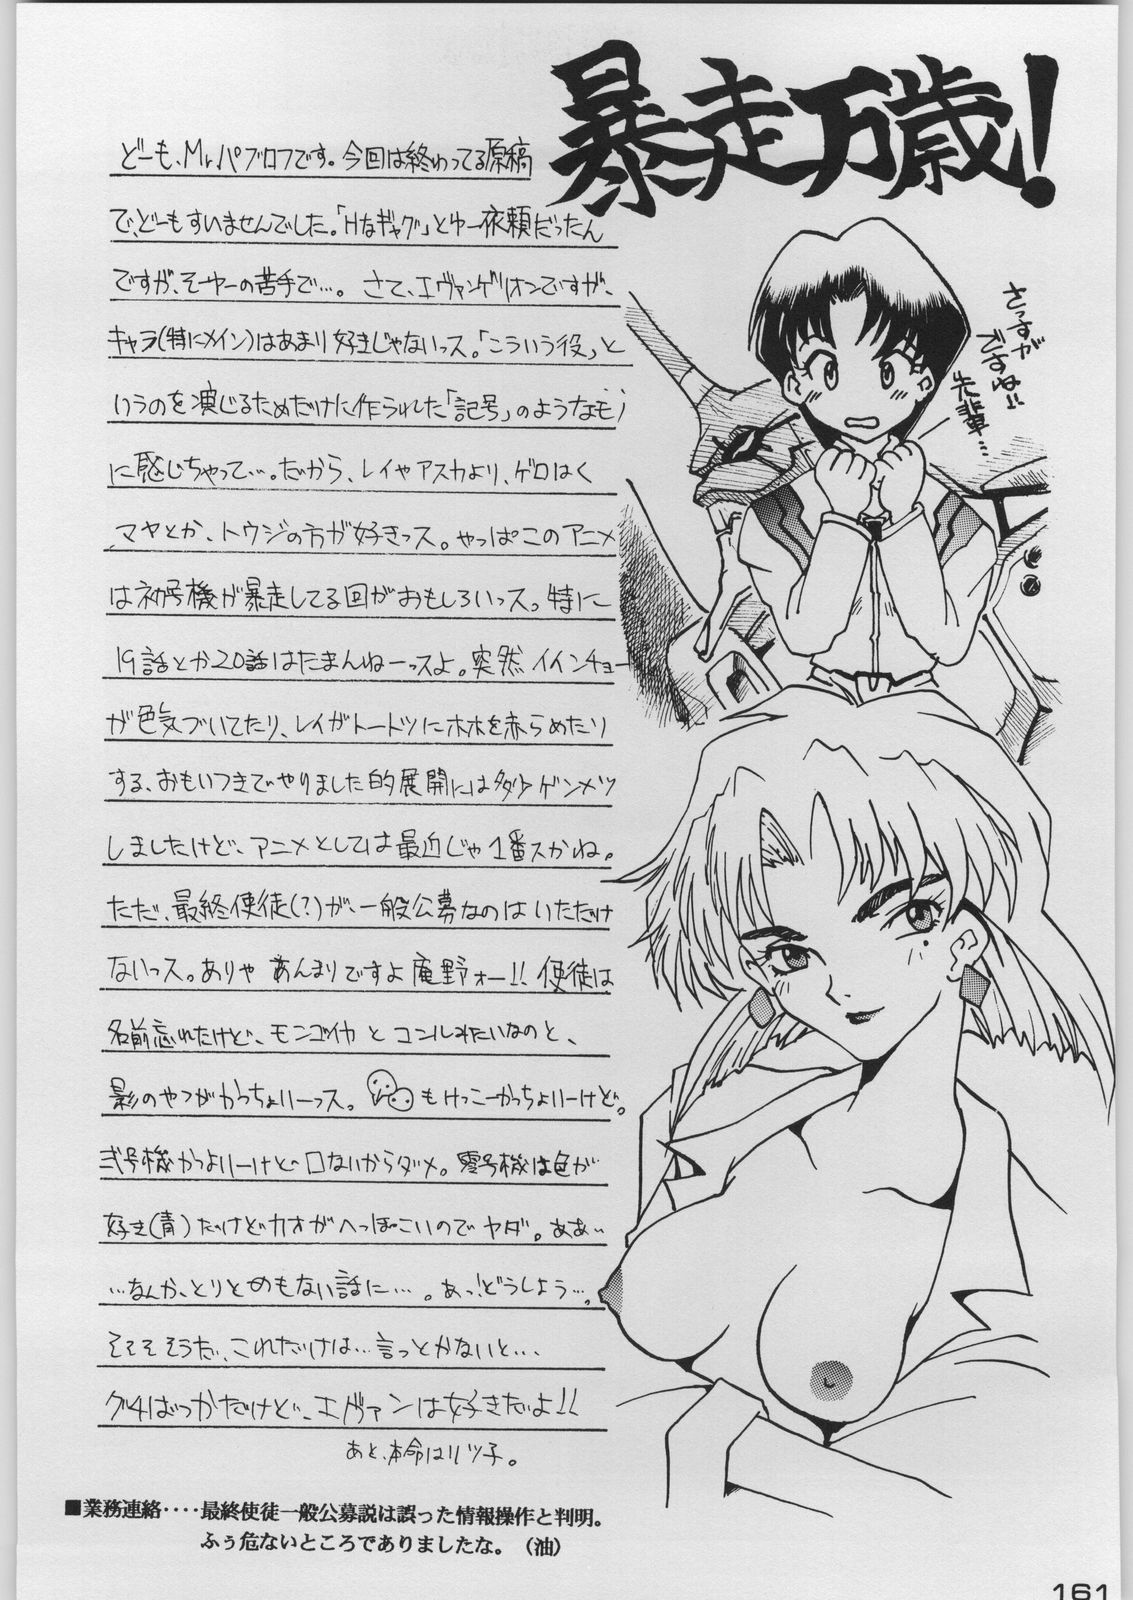 暴走万歳!
どーも、Mr.パブロフです。今回は終わってる原稿
で、どーもすいませんでした。「Hなギャグ」とゆー依頼だったん
ですが、そーゆーの苦手で…。さて、エヴァンゲリオンですが、
キャラ(特にメイン)はあまり好きじゃないっス。「こういう役」と
いうのを演じるためだけに作られした「記号」のようなモノ
に感じちゃって…。だから、レイやアスカより、ゲロはく
マヤとか、トウジの方が好きっス。やっぱこのアニメ
は初号機が暴走してる回がおもしろいっス。特に
19話とか20話はたまんねーっスよ。突然イインチョー
が色気づいてたり、レイがトートツにホホを赤らめたり
する、おもいつきでやりました的展開には多少ゲンメツ
しましたけど、アニメとしては最近じゃ1番スかね。
ただ、最終使徒(?)が、一般公募なのはいただけ
ないっス。ありゃあんまりですよ庵野ォー!!使徒は
名前忘れたけど、モンゴイカとコンルみたいなのと、
影のやつがかっちょいーっス。もけっこーかっちょいーけど。
弐号機かっよいーけど、口ないからダメ。零号機は色が
好き(青)だけどカオがへっぽこいのでヤダ。ああ…
…なんか、とりとめもない話に…。あっ!どうしよう…。
そそそそうだ、これだけは…言っとかないと…
グチばっかだけど、エヴァンは好きだよ!!
あと、本命はリツ子。
さっすが
ですね!!
先輩…
■業務連絡‥‥最終使徒一般公募説は誤った情報操作と判明。
ふぅ危ないところでありましたな。(油)
161